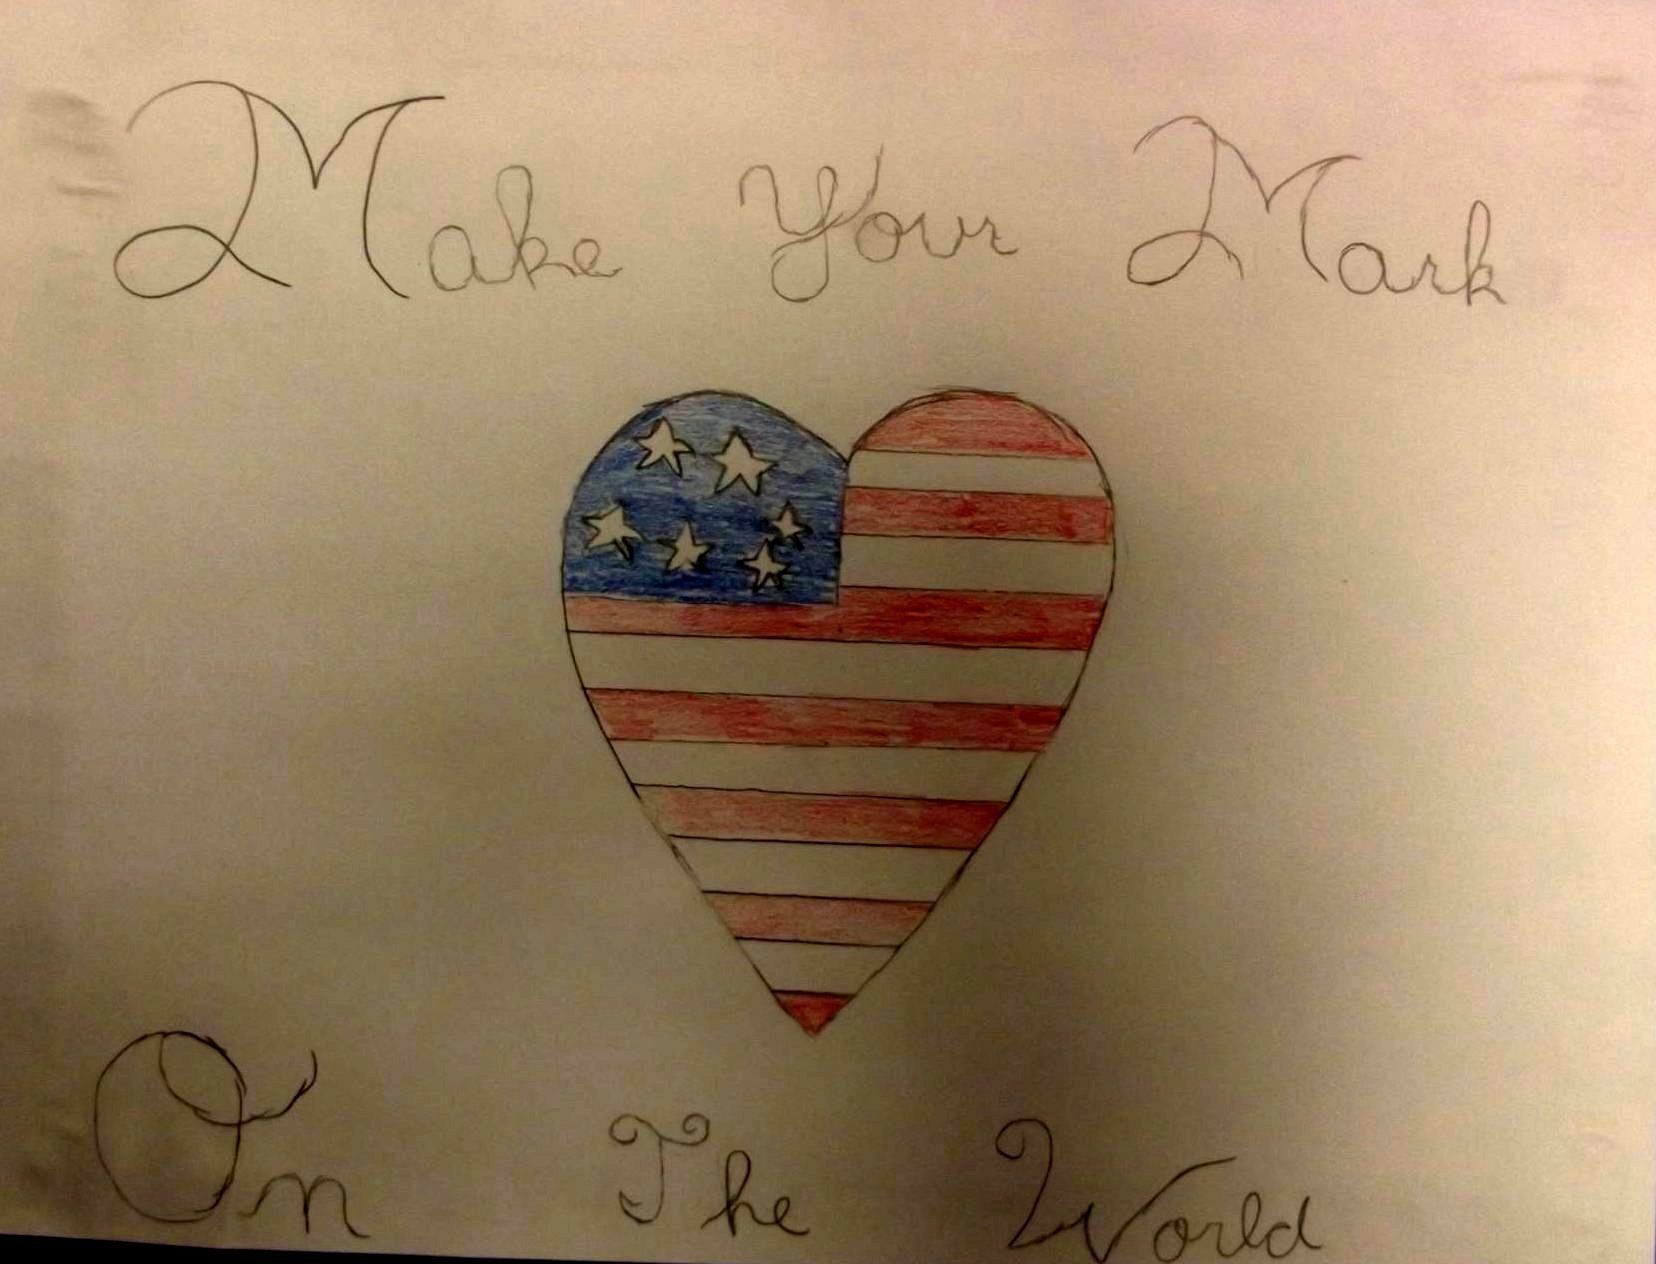 Make Your Mark
On The World